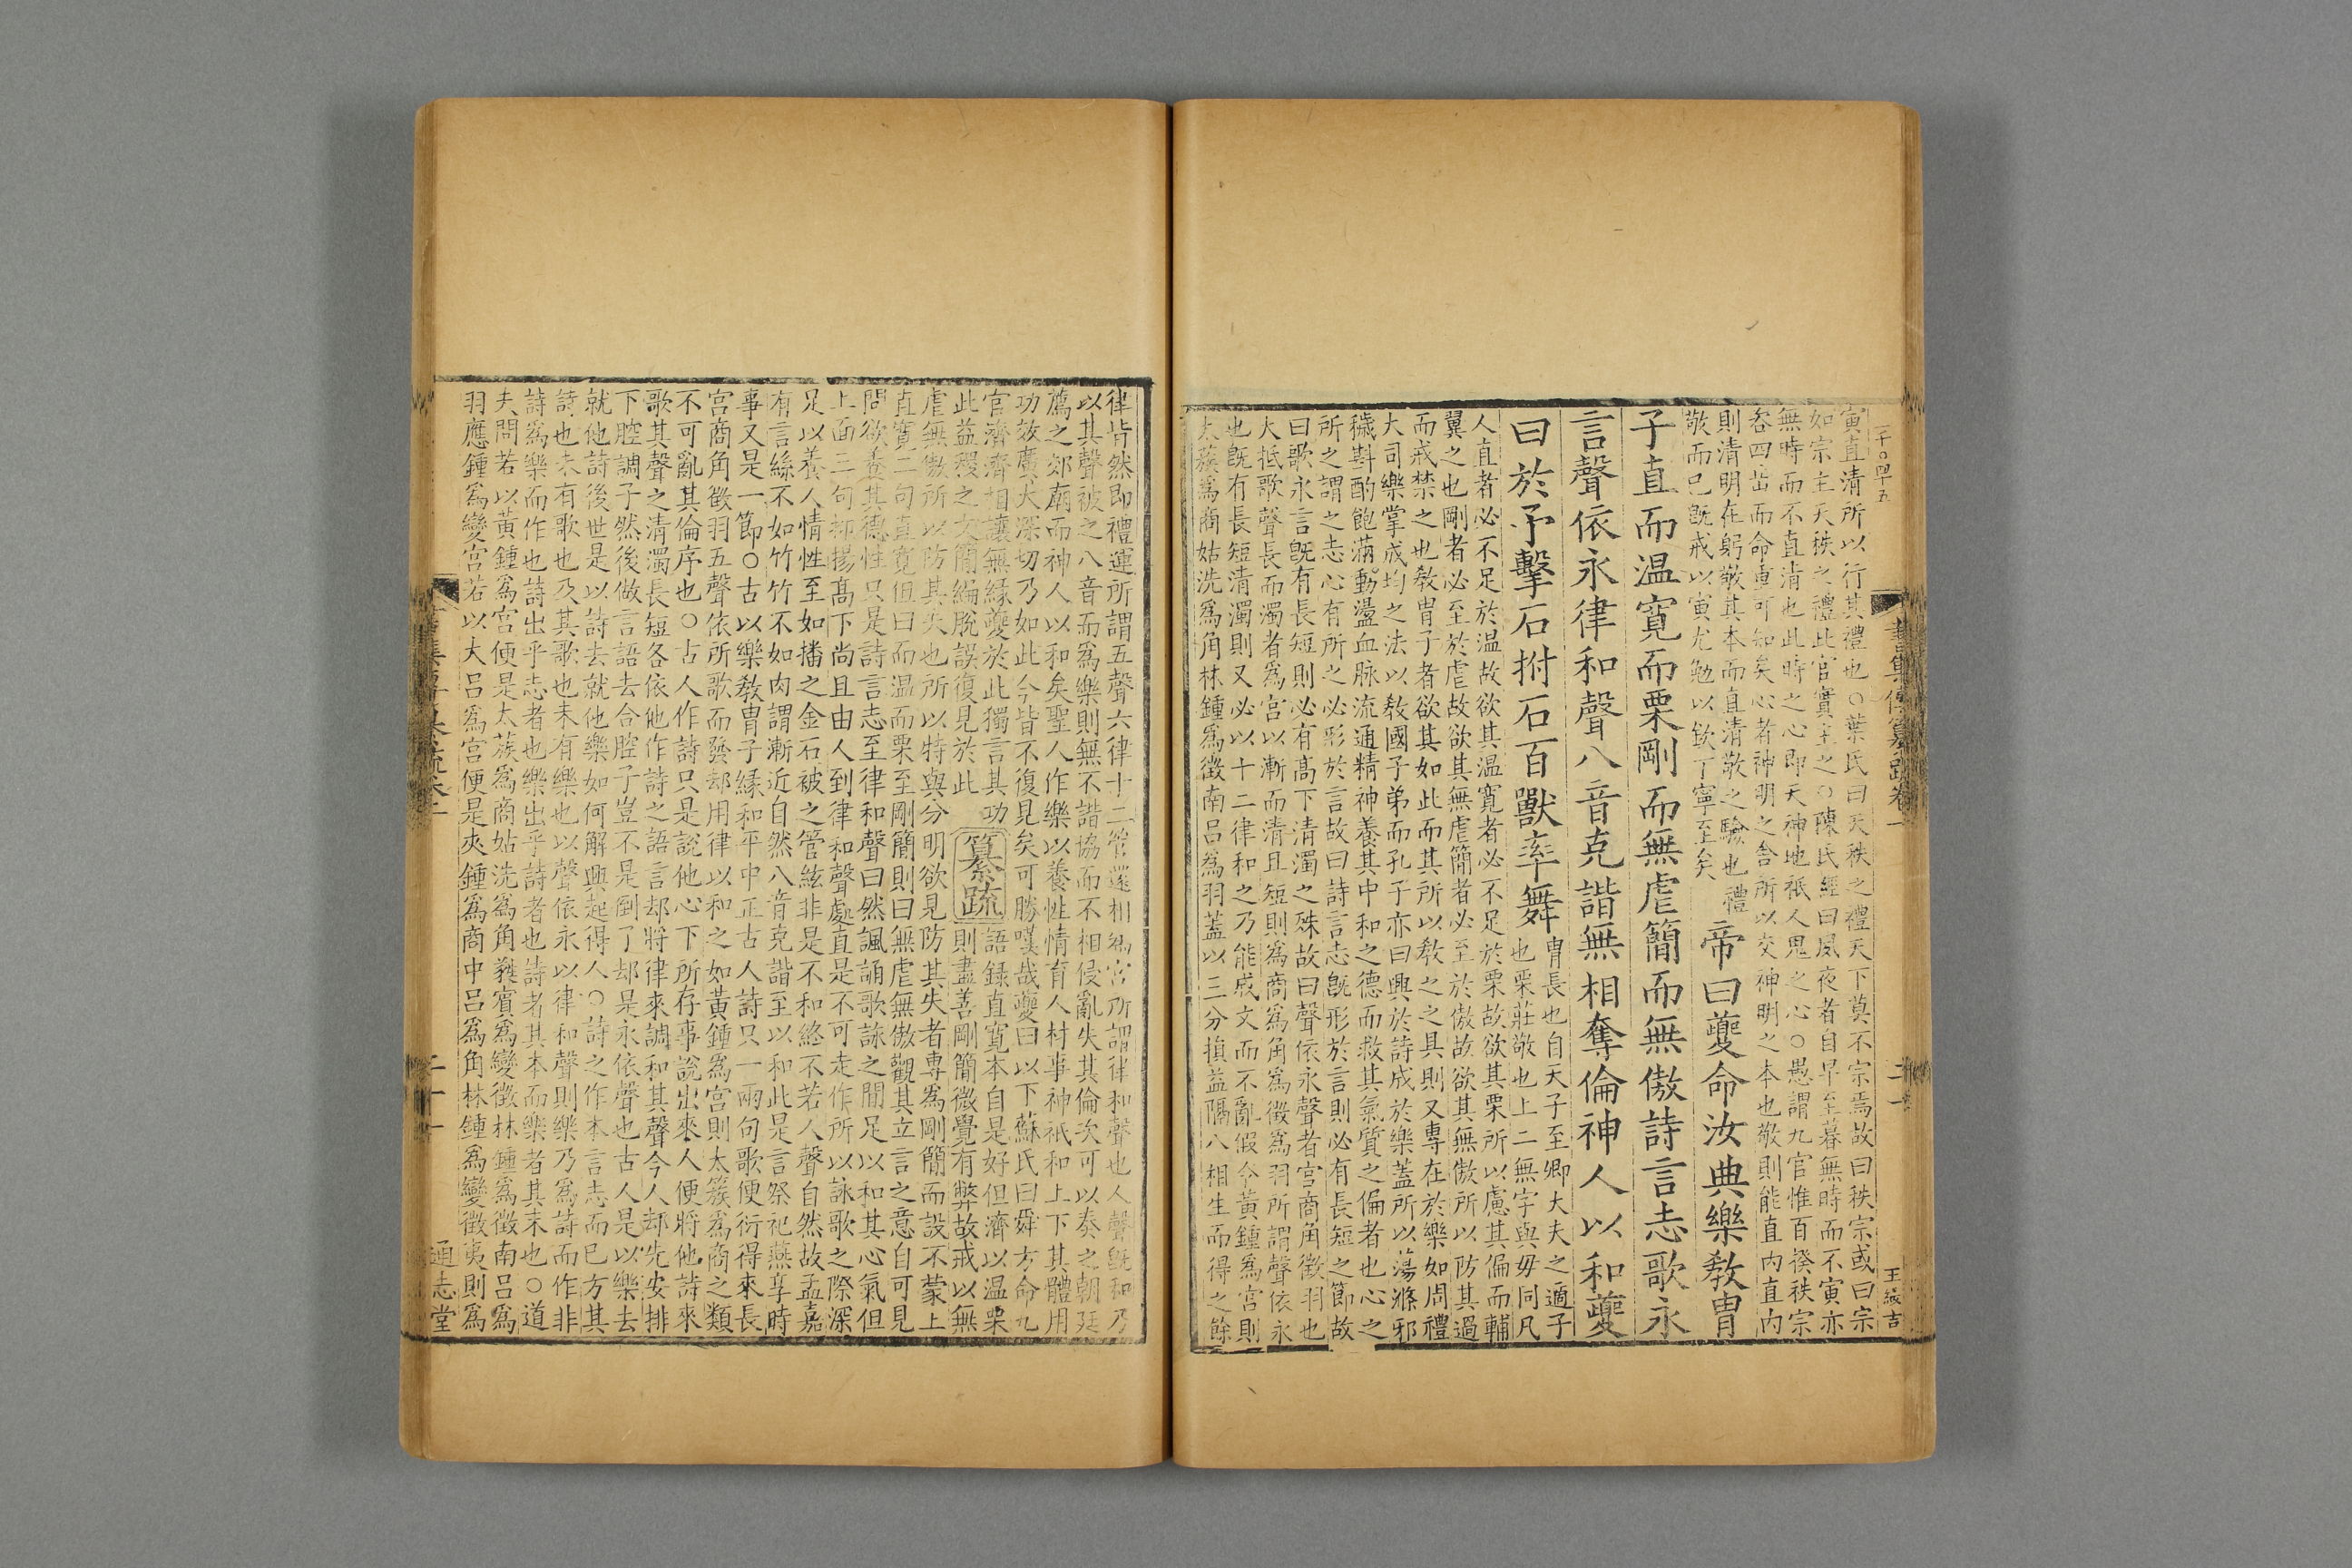 寅直清所以行其禮也○葉氏曰天秩之禮天下莫不宗焉故曰秩宗或曰宗
如宗主天秩之禮此官實主之○陳氏經曰夙夜者自早至暮無時而不寅亦
無時而不直清也此時之心即天神地祇人鬼之心○愚謂九官惟百揆秩宗
咨四岳而命重可知矣心者神明之舍所以交神明之本也敬則能直內直內
則清明在躬敬其本而直清敬之驗也禮
敬而已既戒以寅尤勉以欽丁寧至矣
帝曰夔命汝典樂教胄
子直而温寛而栗剛而無虐簡而無傲詩言志歌永
言聲依永律和聲八音克諧無相奪倫神人以和夔
曰於予擊石拊石百獸率舞
胄長也自天子至卿大夫之適子
也栗莊敬也上二無字與毋同凡
人直者必不足於温故欲其温寛者必不足於栗故欲其栗所以慮其偏而輔
翼之也剛者必至於虐故欲其無虐簡者必至於傲故欲其無傲所以防其過
而戒禁之也教胄子者欲其如此而其所以教之之具則又專在於樂如周禮
大司樂掌成均之法以教國子弟而孔子亦曰興於詩成於樂蓋所以蕩滌邪
穢斟酌飽滿動盪血脉流通精神養其中和之德而救其氣質之偏者也心之
所之謂之志心有所之必形於言故曰詩言志既形於言則必有長短之節故
曰歌永言既有長短則必有高下清濁之殊故曰聲依永聲者宮商角徵羽也
大抵歌聲長而濁者爲宮以漸而清且短則爲商爲角爲徵爲羽所謂聲依永
也既有長短清濁則又必以十二律和之乃能成文而不亂假令黃鍾爲宮則
太蔟爲商姑洗爲角林鍾爲徵南呂爲羽蓋以三分損益隔八相生而得之餘
王綬吉
律皆然即禮運所謂五聲六律十二管還相爲宮所謂律和聲也人聲既和乃
以其聲被之八音而爲樂則無不諧協而不相侵亂失其倫次可以奏之朝廷
薦之郊廟而神人以和矣聖人作樂以養性情育人材事神祇和上下其體用
功效廣大深切乃如此今皆不復見矣可勝嘆哉夔曰以下蘇氏曰舜方命九
官濟濟相讓無緣夔於此獨言其功
此益稷之文簡編脫誤復見於此
纂疏
語録直寛本自是好但濟以温栗
則盡善剛簡微覺有弊故戒以無
虐無傲所以防其失也所以特與分明欲見防其失者專爲剛簡而設不蒙上
直寛二句直寛但曰而温而栗至剛簡則曰無虐無傲觀其立言之意自可見
問欲養其德性只是詩言志至律和聲曰然諷誦歌詠之間足以和其心氣但
上面三句抑揚高下尚且由人到律和聲處直是不可走作所以詠歌之際深
足以養人情性至如播之金石被之管絃非是不和終不若人聲自然故孟嘉
有言絲不如竹竹不如肉謂漸近自然八音克諧至以和此是言祭祀燕享時
事又是一節○古以樂教胄子緣和平中正古人詩只一兩句歌便衍得來長
宮商角徵羽五聲依所歌而發却用律以和之如黃鍾爲宮則太簇爲商之類
不可亂其倫序也○古人作詩只是說他心下所存事說出來人便將他詩來
歌其聲之清濁長短各依他作詩之語言却將律來調和其聲今人却先安排
下腔調子然後做言語去合腔子豈不是倒了却是永依聲也古人是以樂去
就他詩後世是以詩去就他樂如何解興起得人○詩之作本言志而已方其
詩也未有歌也及其歌也未有樂也以聲依永以律和聲則樂乃爲詩而作非
詩爲樂而作也詩出乎志者也樂出乎詩者也詩者其本而樂者其末也○道
夫問若以黃鍾爲宮便是太蔟爲商姑洗爲角蕤賓爲變徵林鍾爲徵南呂爲
羽應鍾爲變宮若以大呂爲宮便是夾鍾爲商中呂爲角林鍾爲變徵夷則爲
通志堂